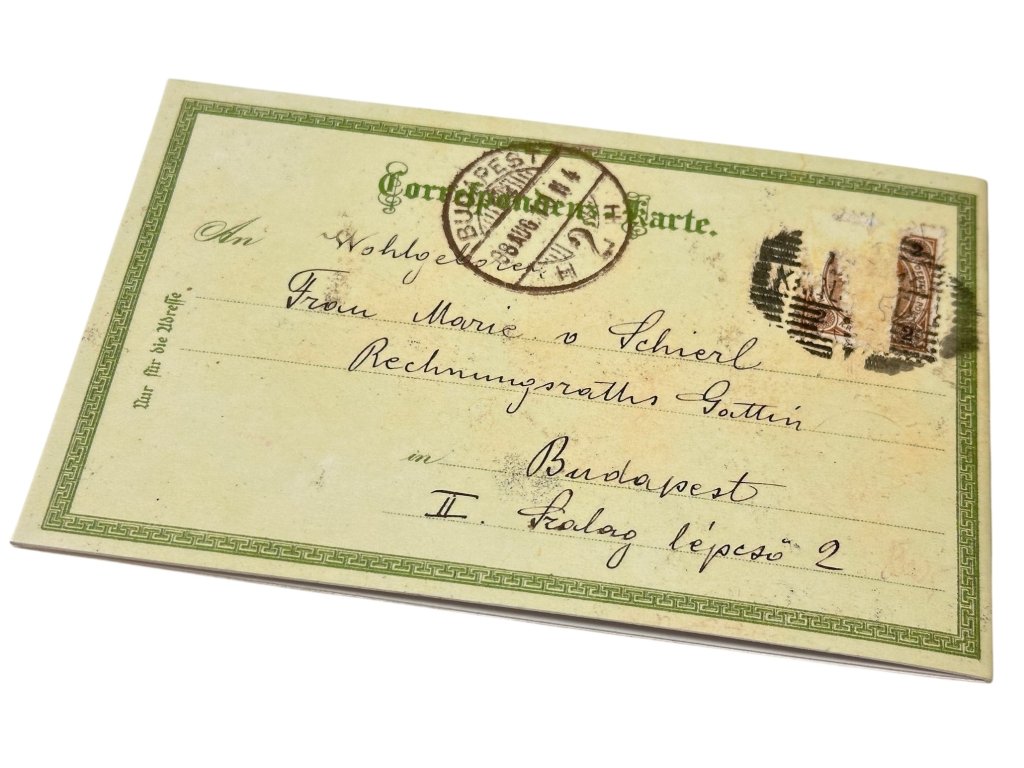 Correspondenz-Karte.
BUDAPEST
98 AUG
An Wohlgeboren
Frau Marie v Schierl
Rechnungsraths Gattin
Nur für die Adresse
in Budapest
II. Szalag lépcső 2